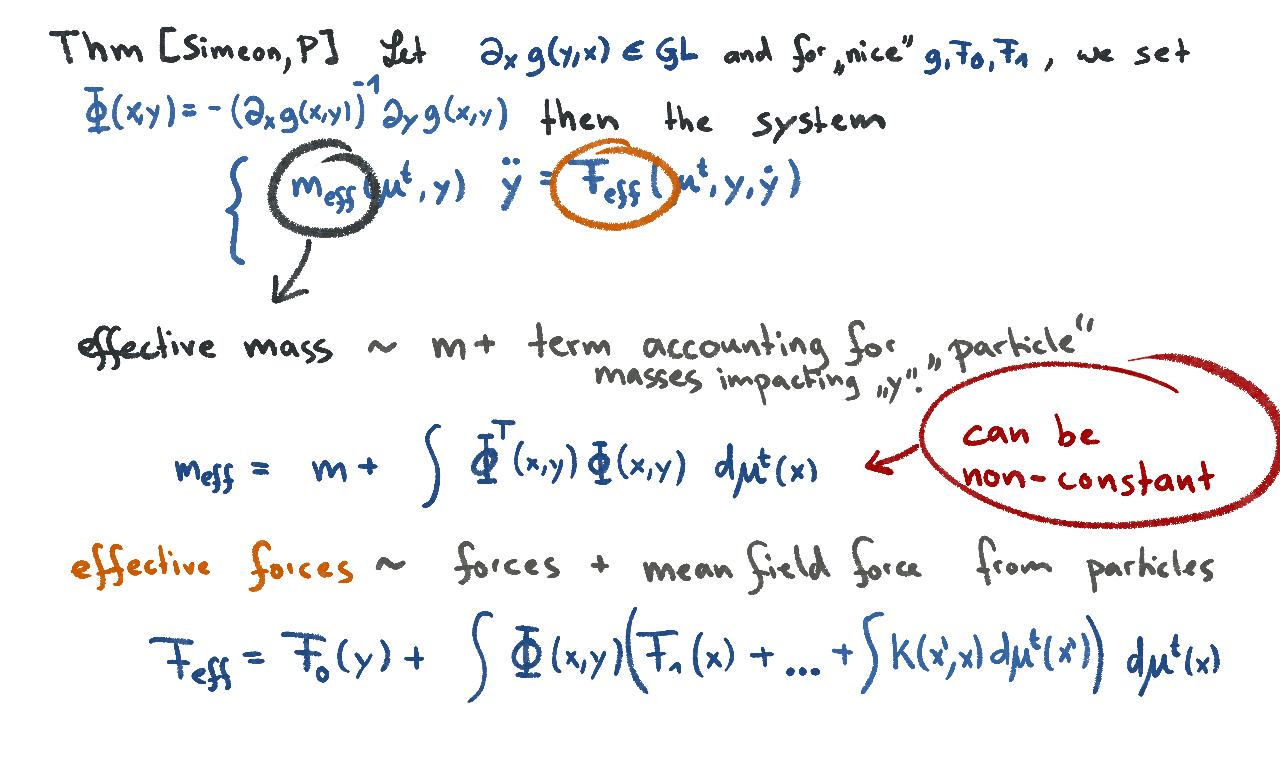 Thm [Simeon, P] Let ∂ₓ g(y,x) ∈ GL and for „nice" g, F₀, F₁, we set
Φ(x,y) = - (∂ₓg(x,y))⁻¹ ∂ᵧ g(x,y) then the system
{ m_eff(μᵗ, y) ÿ = F_eff(μᵗ, y, ẏ)
effective mass ~ m + term accounting for „particle"
masses impacting „y".
can be
non-constant
m_eff = m + ∫ Φᵀ(x,y) Φ(x,y) dμᵗ(x)
effective forces ~ forces + mean field force from particles
F_eff = F₀(y) + ∫ Φ(x,y)(F₁(x) + ... + ∫ K(x',x) dμᵗ(x')) dμᵗ(x)